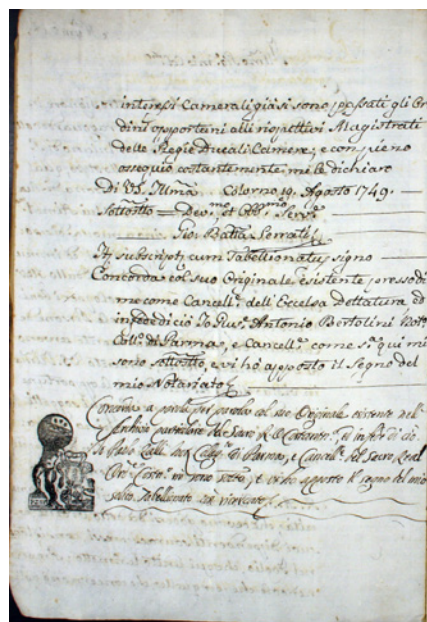 interessi Camerali già si sono passati gli Or
dini opportuni alli rispettivi Magistrati
delle Regie Ducali Camere, e con pieno
ossequio costantemente me le dichiaro
Di V.S. Illma. Colorno 19. Agosto 1749. —
Sottotto = Devmo. et Obbmo. Serve.
Gio: Batta Serrati
Ita subscript, cum Tabellionatus signo —
Concorda col suo Originale esistente presso di
me come Cancelle. dell'Eccelsa Dettatura ed
in fede di ciò Io Antonio Bertolini Noto.
Colle. di Parma, e Cancelle. come sa. qui mi
sono sottotto, e vi hò apposto il Segno del
mio Notariato
Concorda a parola per parola col suo Originale esistente nell'
particolare del Sacro et in fede di ciò
Io Paolo di Parma, e Cancelle. del Sacro Real
Orde. Costno. mi sono sottto, e vi ho apposto il segno del mio
solito Tabellionato